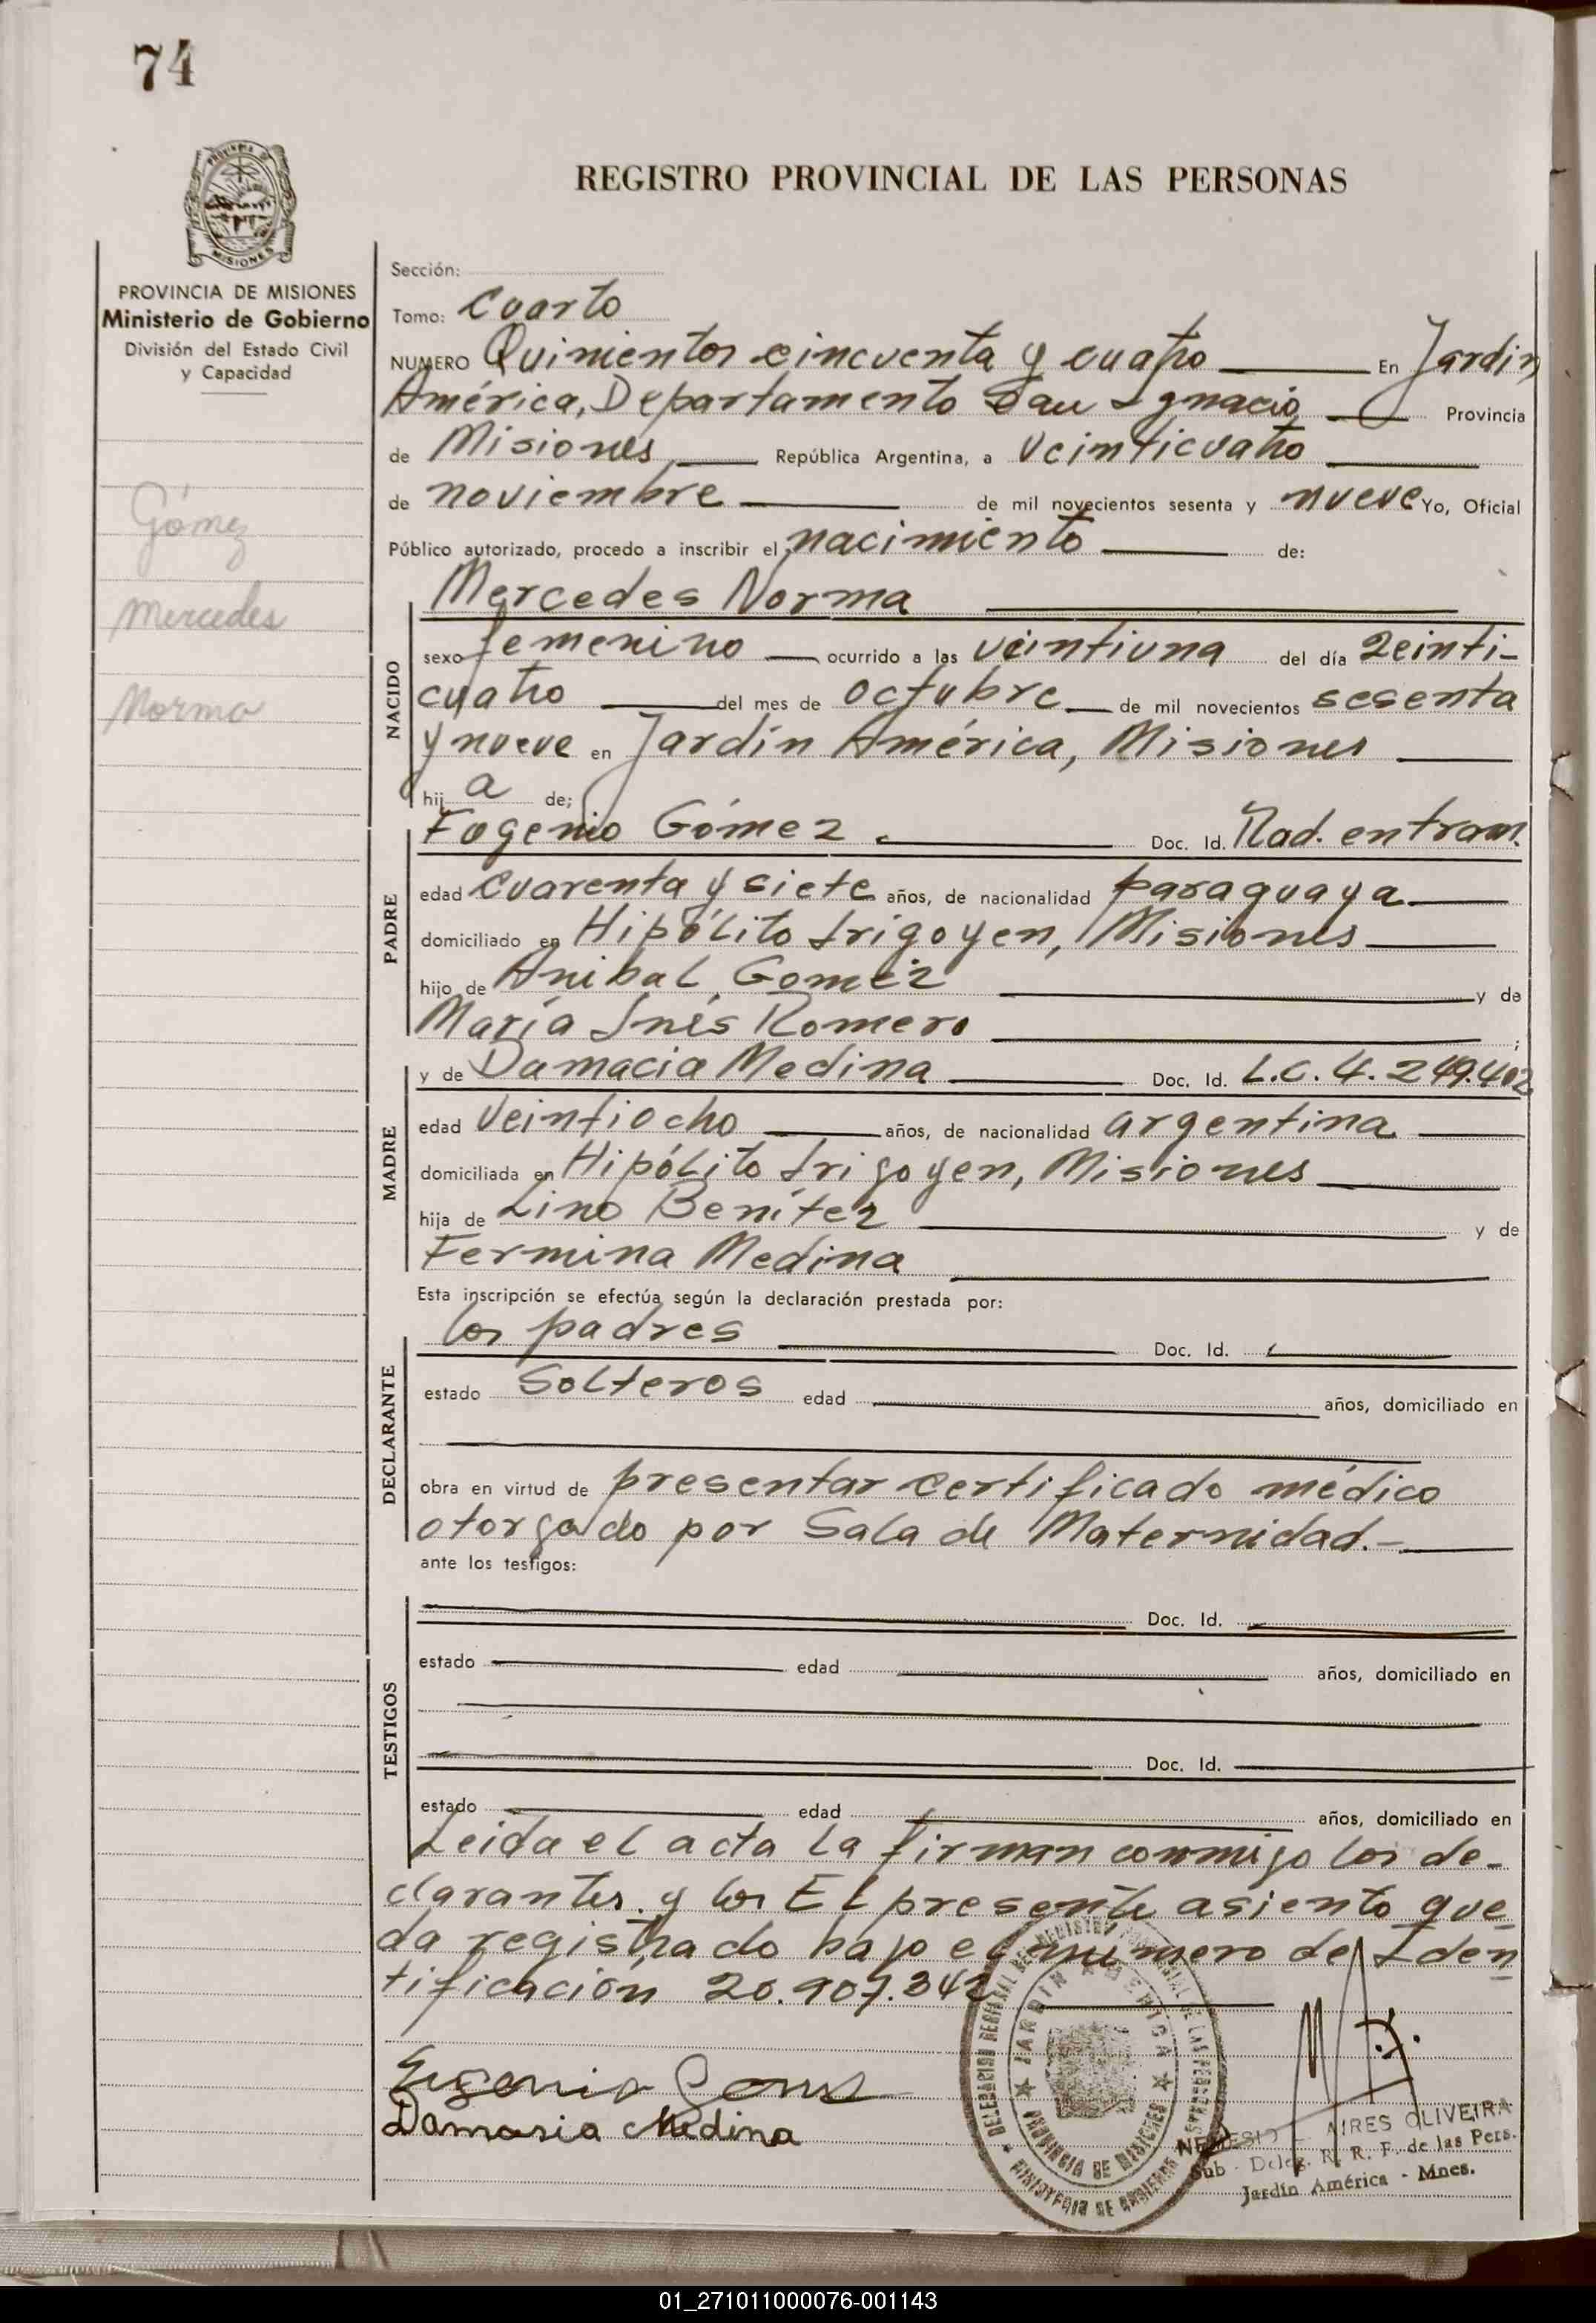 74
PROVINCIA DE
MISIONES
REGISTRO PROVINCIAL DE LAS PERSONAS
PROVINCIA DE MISIONES
Ministerio de Gobierno
División del Estado Civil
y Capacidad
Gómez
Mercedes
Norma
Sección:
Tomo: Cuarto
NUMERO Quinientos cincuenta y cuatro En Jardín
América, Departamento San Ignacio Provincia
de Misiones República Argentina, a veinticuatro
de noviembre de mil novecientos sesenta y nueve Yo, Oficial
Público autorizado, procedo a inscribir el nacimiento de:
Mercedes Norma
NACIDO
sexo femenino ocurrido a las veintiuna del día veinti-
cuatro del mes de octubre de mil novecientos sesenta
y nueve en Jardín América, Misiones
hij a de;
PADRE
Eugenio Gómez Doc. Id. Rad. en tram.
edad cuarenta y siete años, de nacionalidad paraguaya
domiciliado en Hipólito Irigoyen, Misiones
hijo de Anibal Gomez y de
María Inés Romero ;
MADRE
y de Damacia Medina Doc. Id. L.C. 4.249.402
edad veintiocho años, de nacionalidad argentina
domiciliada en Hipólito Irigoyen, Misiones
hija de Lino Benítez y de
Fermina Medina
Esta inscripción se efectúa según la declaración prestada por:
DECLARANTE
los padres Doc. Id.
estado Solteros edad años, domiciliado en
obra en virtud de presentar certificado médico
otorgado por Sala de Maternidad.-
ante los testigos:
TESTIGOS
Doc. Id.
estado edad años, domiciliado en
Doc. Id.
estado edad años, domiciliado en
Leida el acta la firman conmigo los de-
clarantes. y los El presente asiento que
da registrado bajo el numero de Iden
tificación 20.907.342
Eugenio Gomez
Damasia Medina
DELEGACION REGISTRO PROVINCIAL DE LAS PERSONAS
JARDIN AMERICA
PROVINCIA DE MISIONES
MINISTERIO DE GOBIERNO
NEMESIO AIRES OLIVEIRA
Sub - Deleg. R. R. P. de las Pers.
Jardín América - Mnes.
01_271011000076-001143